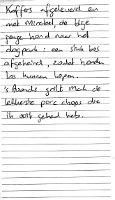 Koffers afgeleverd en
met Mirabel, de blije
jonge hond naar het
dogpark: een stuk bos
afgeheind, zodat honden
los kunnen lopen.
's Avonds grillt Mark de
lekkerste porc chops die
ik ooit gehad heb.